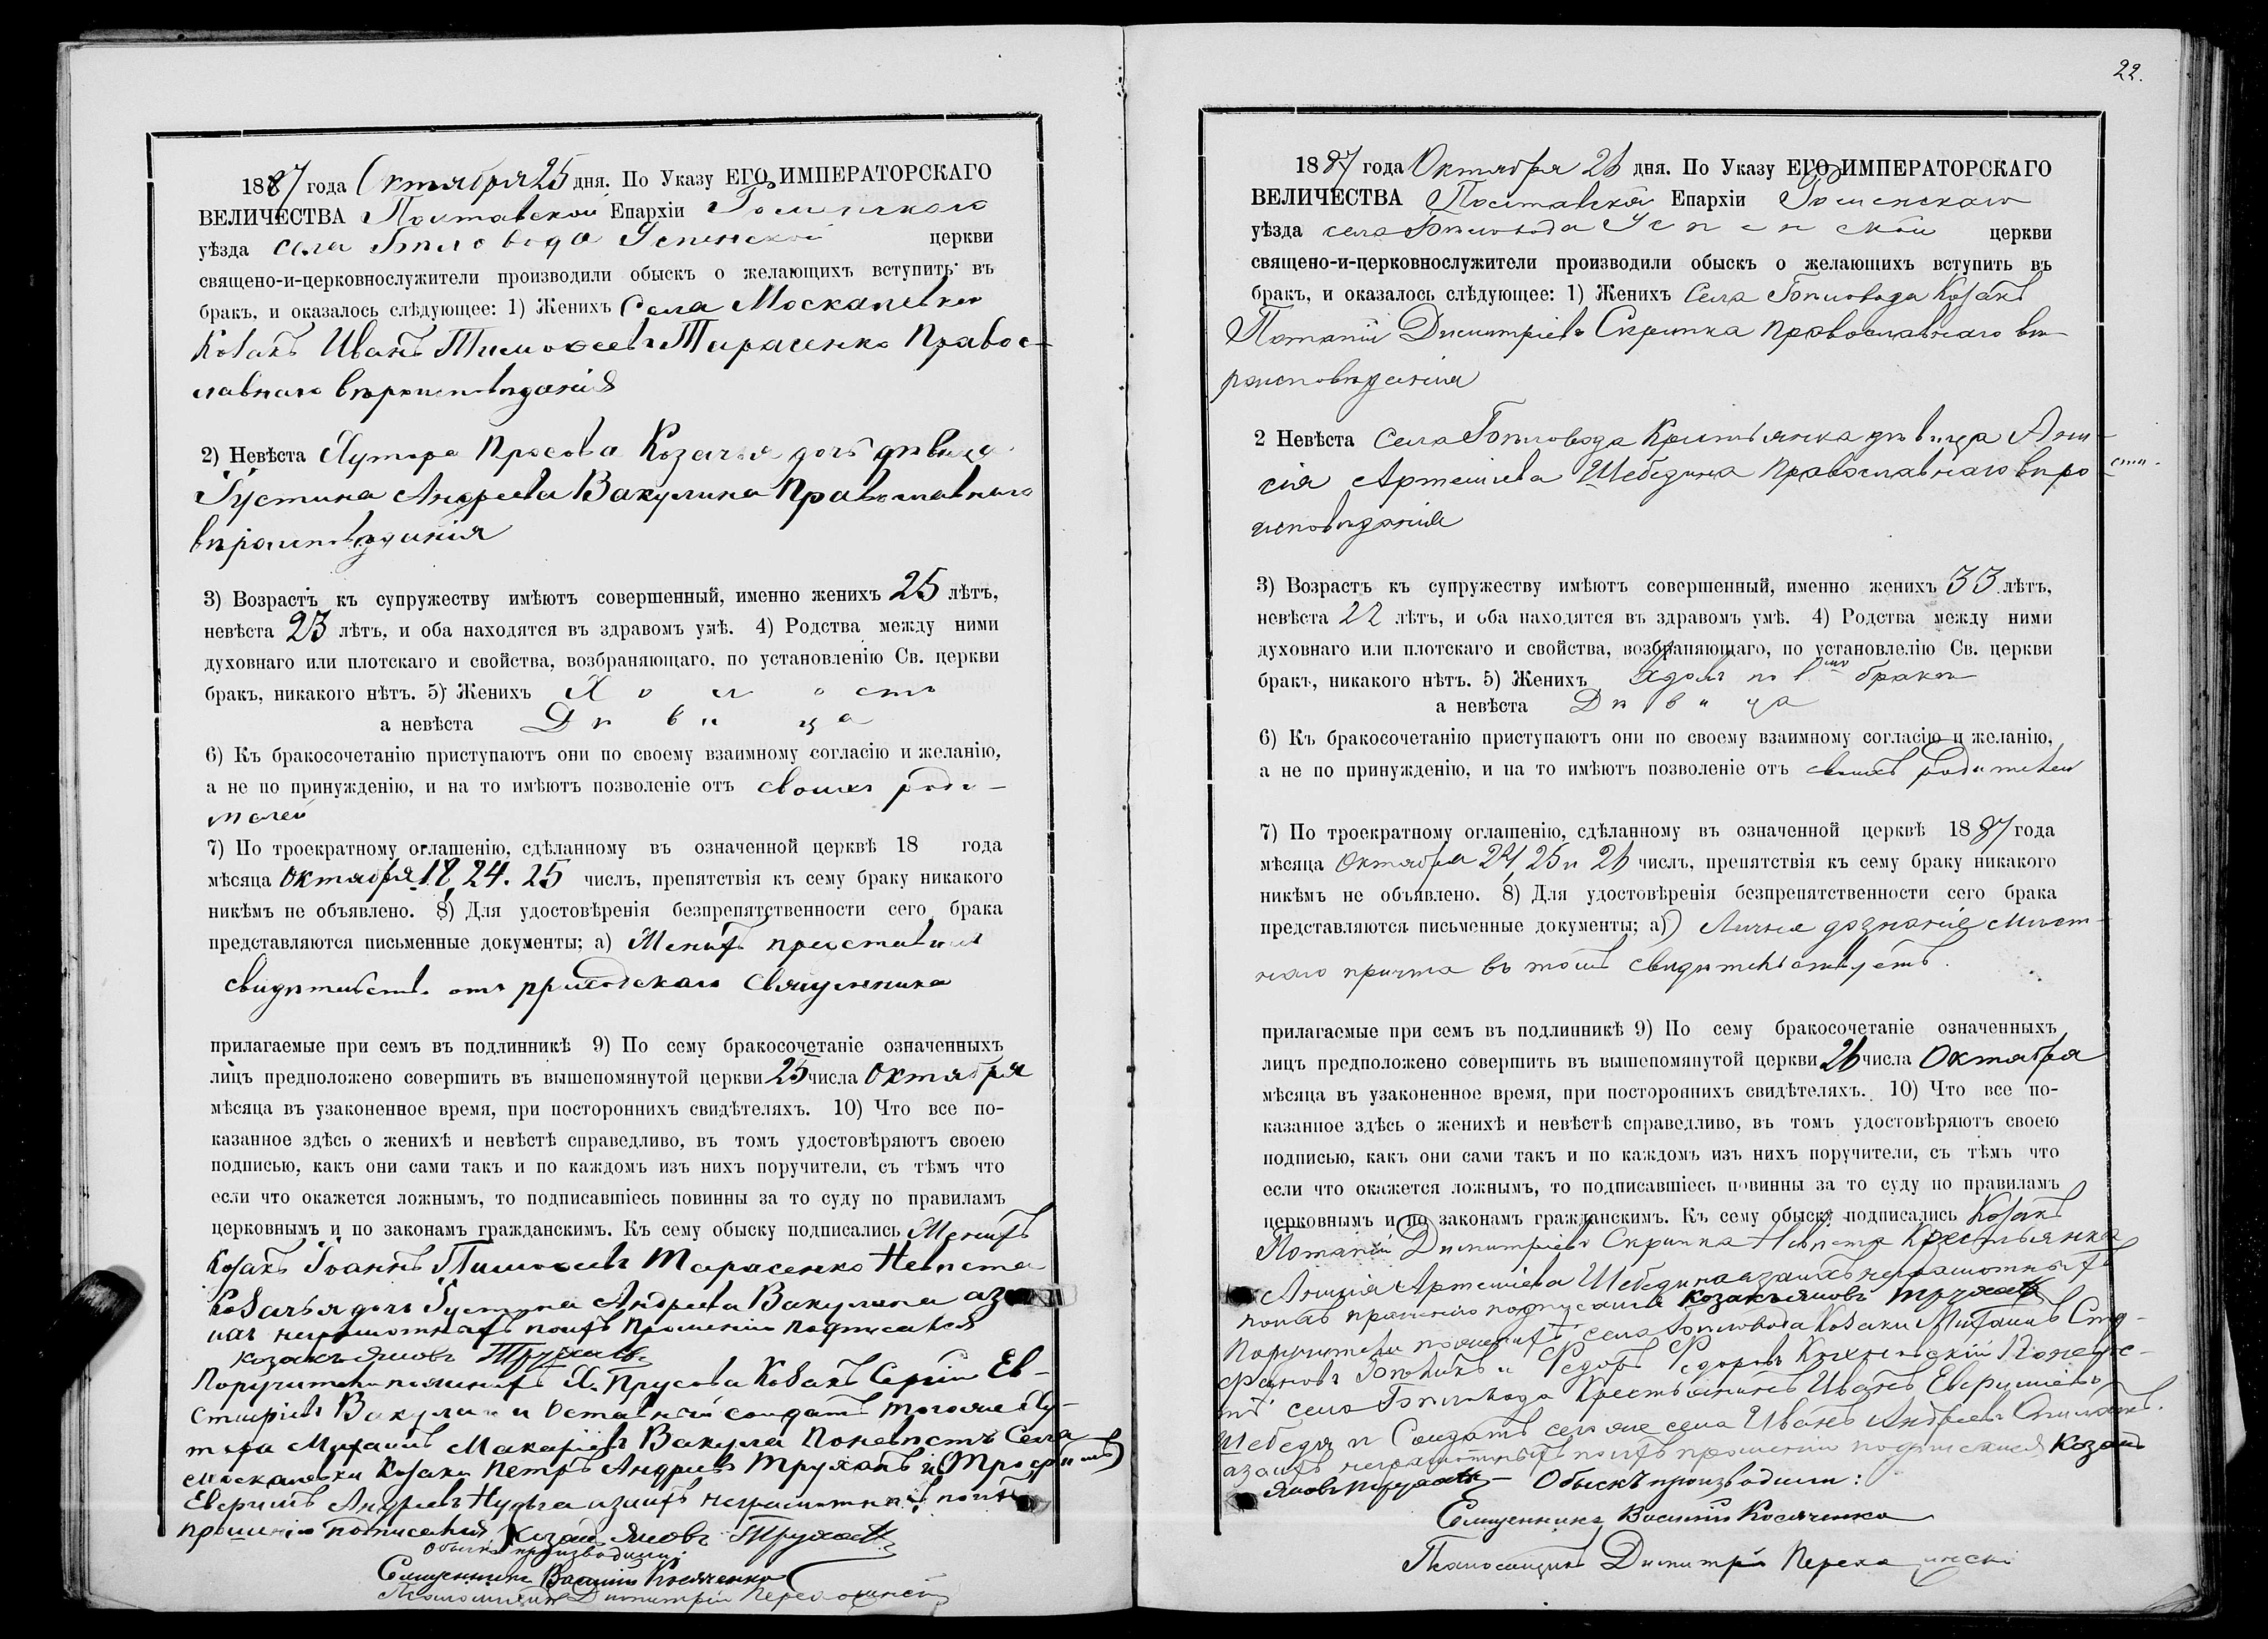 1887 года Октября 25 дня. По Указу ЕГО ИМПЕРАТОРСКАГО
ВЕЛИЧЕСТВА Полтавской Епархіи Роменскаго
уѣзда села Бѣловода Успенской церкви
священо-и-церковнослужители производили обыскъ о желающихъ вступить въ
бракъ, и оказалось слѣдующее: 1) Женихъ Села Москалевки
Козакъ Иванъ Тимоѳеевъ Тарасенко Правос-
лавнаго вѣроисповѣданія
2) Невѣста Хутора Прусова Козачья дочь дѣвица
Іустина Андреева Вакулина Православнаго
вѣроисповѣданія
3) Возрастъ къ супружеству имѣютъ совершенный, именно женихъ 25 лѣтъ,
невѣста 23 лѣтъ, и оба находятся въ здравомъ умѣ. 4) Родства между ними
духовнаго или плотскаго и свойства, возбраняющаго, по установленію Св. церкви
бракъ, никакого нѣтъ. 5) Женихъ Холостъ
а невѣста Дѣвица
6) Къ бракосочетанію приступаютъ они по своему взаимному согласію и желанію,
а не по принужденію, и на то имѣютъ позволеніе отъ своихъ роди-
телей
7) По троекратному оглашенію, сдѣланному въ означенной церквѣ 18 года
мѣсяца Октября 18, 24. 25 числъ, препятствія къ сему браку никакого
никѣмъ не объявлено. 8) Для удостовѣренія безпрепятственности сего брака
представляются письменные документы; а) Женихъ преставилъ
свидѣтельство отъ приходскаго Священника
прилагаемые при семъ въ подлинникѣ 9) По сему бракосочетаніе означенныхъ
лицъ предположено совершить въ вышепомянутой церкви 25 числа Октября
мѣсяца въ узаконенное время, при постороннихъ свидѣтеляхъ. 10) Что все по-
казанное здѣсь о женихѣ и невѣстѣ справедливо, въ томъ удостовѣряютъ своею
подписью, какъ они сами такъ и по каждомъ изъ нихъ поручители, съ тѣмъ что
если что окажется ложнымъ, то подписавшіесь повинны за то суду по правиламъ
церковнымъ и по законамъ гражданскимъ. Къ сему обыску подписались Женихъ
Козакъ Іоаннъ Тимоѳеевъ Тарасенко Невѣста
Козачья дочь Іустина Андреева Вакулина аза
нихъ неграмотныхъ поихъ прошенію подписался
козакъ Яковъ Труханъ
Поручители поженихѣ Х. Прусова Козакъ Сергій Ев-
стафіевъ Вакула и Отставный солдатъ тогоже Ху-
тора Михаилъ Макаріевъ Вакула Поневѣстѣ Села
Москалевки Козаки Петръ Андреевъ Труханъ и (Трофимъ)
Евфимъ Андреевъ Нудьга азаихъ неграмотныхъ поихъ
прошенію подписался Козакъ Яковъ Труханъ
Обыскъ производили:
Священникъ Василій Косяченко
Псаломщикъ Димитрій
22.
1887 года Октября 26 дня. По Указу ЕГО ИМПЕРАТОРСКАГО
ВЕЛИЧЕСТВА Полтавской Епархіи Роменскаго
уѣзда села Бѣловода Успенской церкви
священо-и-церковнослужители производили обыскъ о желающихъ вступить въ
бракъ, и оказалось слѣдующее: 1) Женихъ Села Бѣловода Козакъ
Потапій Димитріевъ Скрипка православнаго вѣ-
роисповѣданія
2 Невѣста Села Бѣловода Крестьянка дѣвица Ани-
сія Артеміева Шебедина православнаго вѣро
исповѣданія
3) Возрастъ къ супружеству имѣютъ совершенный, именно женихъ 33 лѣтъ,
невѣста 22 лѣтъ, и оба находятся въ здравомъ умѣ. 4) Родства между ними
духовнаго или плотскаго и свойства, возбраняющаго, по установлелію Св. церкви
бракъ, никакого нѣтъ. 5) Женихъ Вдовъ по 1мъ бракѣ
а невѣста Дѣвица
6) Къ бракосочетанію приступаютъ они по своему взаимному согласію и желанію,
а не по принужденію, и на то имѣютъ позволеніе отъ своихъ родителей
7) По троекратному оглашенію, сдѣланному въ означенной церквѣ 1887 года
мѣсяца Октября 24, 25 и 26 числъ, препятствія къ сему браку никакого
никѣмъ не объявлено. 8) Для удостовѣренія безпрепятственности сего брака
представляются письменные документы; а) Личное дознаніе мѣст-
наго причта въ томъ свидѣтельствуетъ.
прилагаемые при семъ въ подлинникѣ 9) По сему бракосочетаніе означенныхъ
лицъ предположено совершить въ вышепомянутой церкви 26 числа Октября
мѣсяца въ узаконенное время, при постороннихъ свидѣтеляхъ. 10) Что все по-
казанное здѣсь о женихѣ и невѣстѣ справедливо, въ томъ удостовѣряютъ своею
подписью, какъ они сами такъ и по каждомъ изъ нихъ поручители, съ тѣмъ что
если что окажется ложнымъ, то подписавшіесь повинны за то суду по правиламъ
церковнымъ и по законамъ гражданскимъ. Къ сему обыску подписались Козакъ
Потапій Димитріевъ Скрипка Невѣста Крестьянка
Анисія Артеміева Шебедина азаихъ неграмотныхъ
поихъ прошенію подписался Козакъ Яковъ Труханъ
Поручители поженихѣ села Бѣловода Козаки Михаилъ Сте-
фановъ и Ѳедоръ Ѳедоровъ Поневѣс-
тѣ села Бѣловода Крестьянинъ Иванъ Евфиміевъ
Шебедя и Солдатъ села Иванъ Андреевъ
азаихъ неграмотныхъ поихъ прошенію подписался Козакъ
Яковъ Труханъ – Обыскъ производили:
Священникъ Василій Косяченко
Псаломщикъ Димитрій